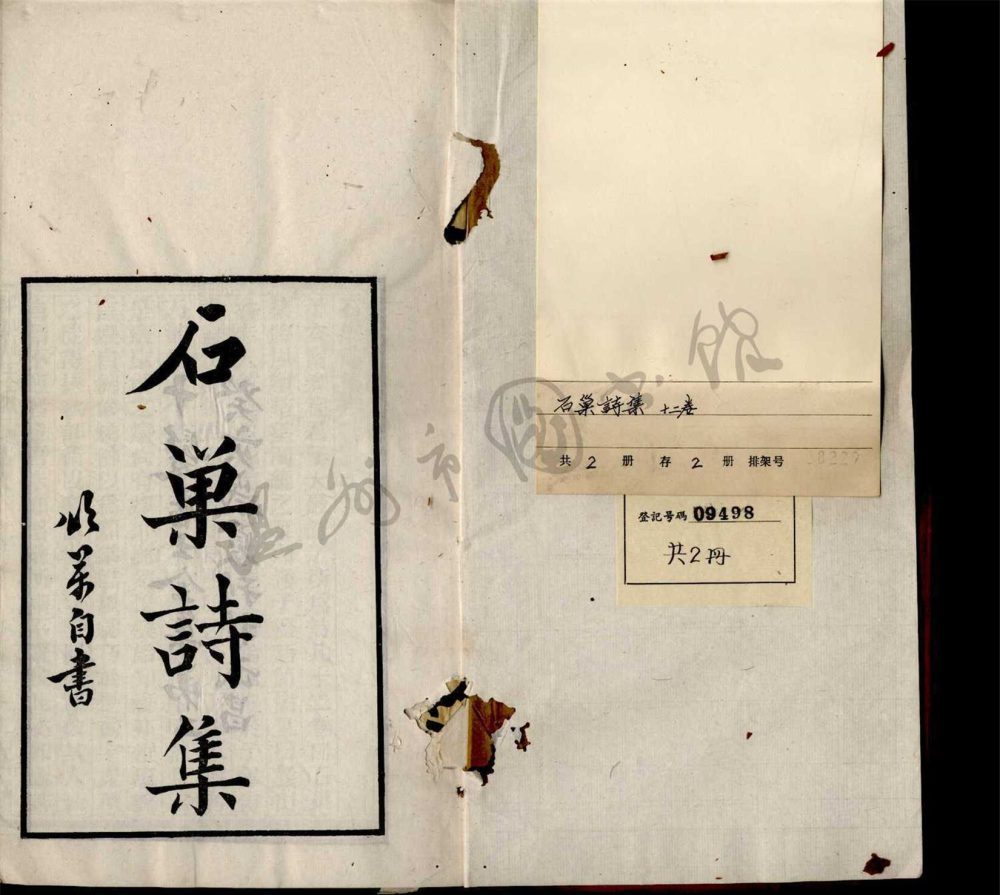 石巢詩集
自書
石巢詩集 十二卷
共 2 册 存 2 册 排架号
登記号碼 09498
共2冊